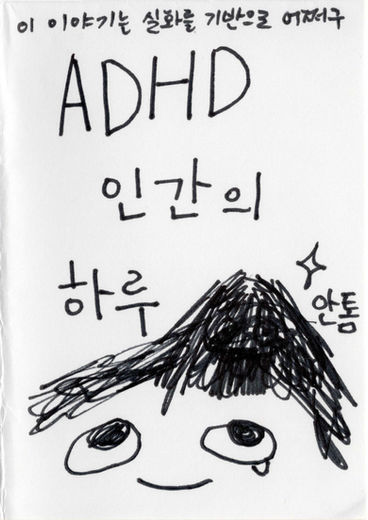 이 이야기는 실화를 기반으로 어쩌구
ADHD
인간의
하루
안톰